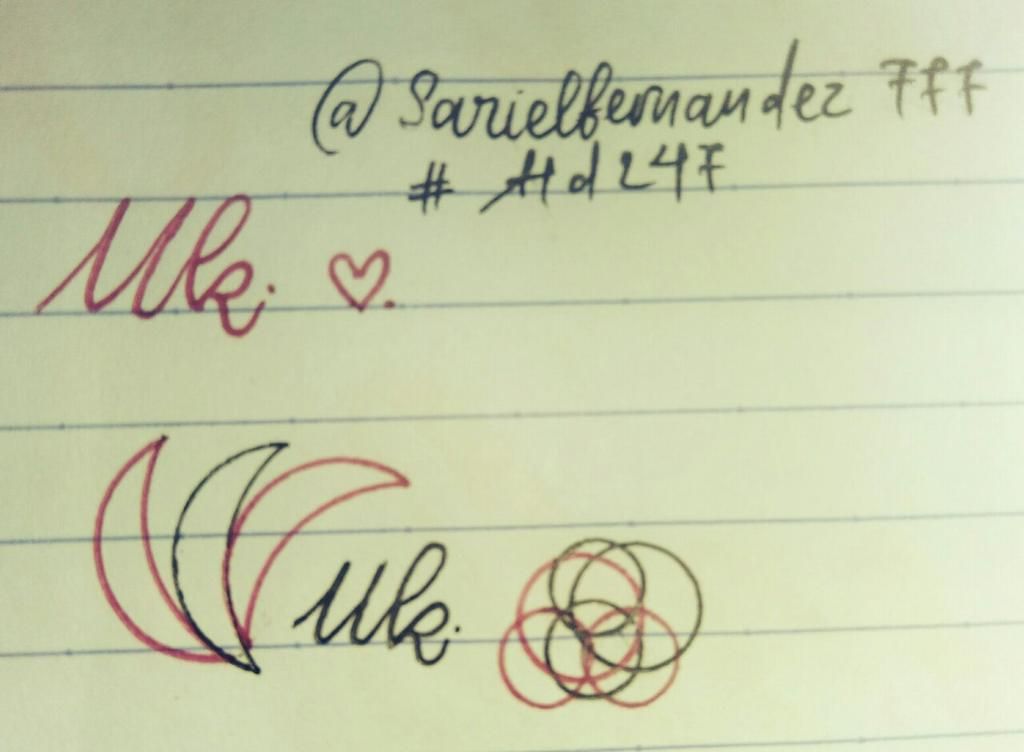 @Sarielfernandez 777
# Hd247
Uk. ♡.
Uk.